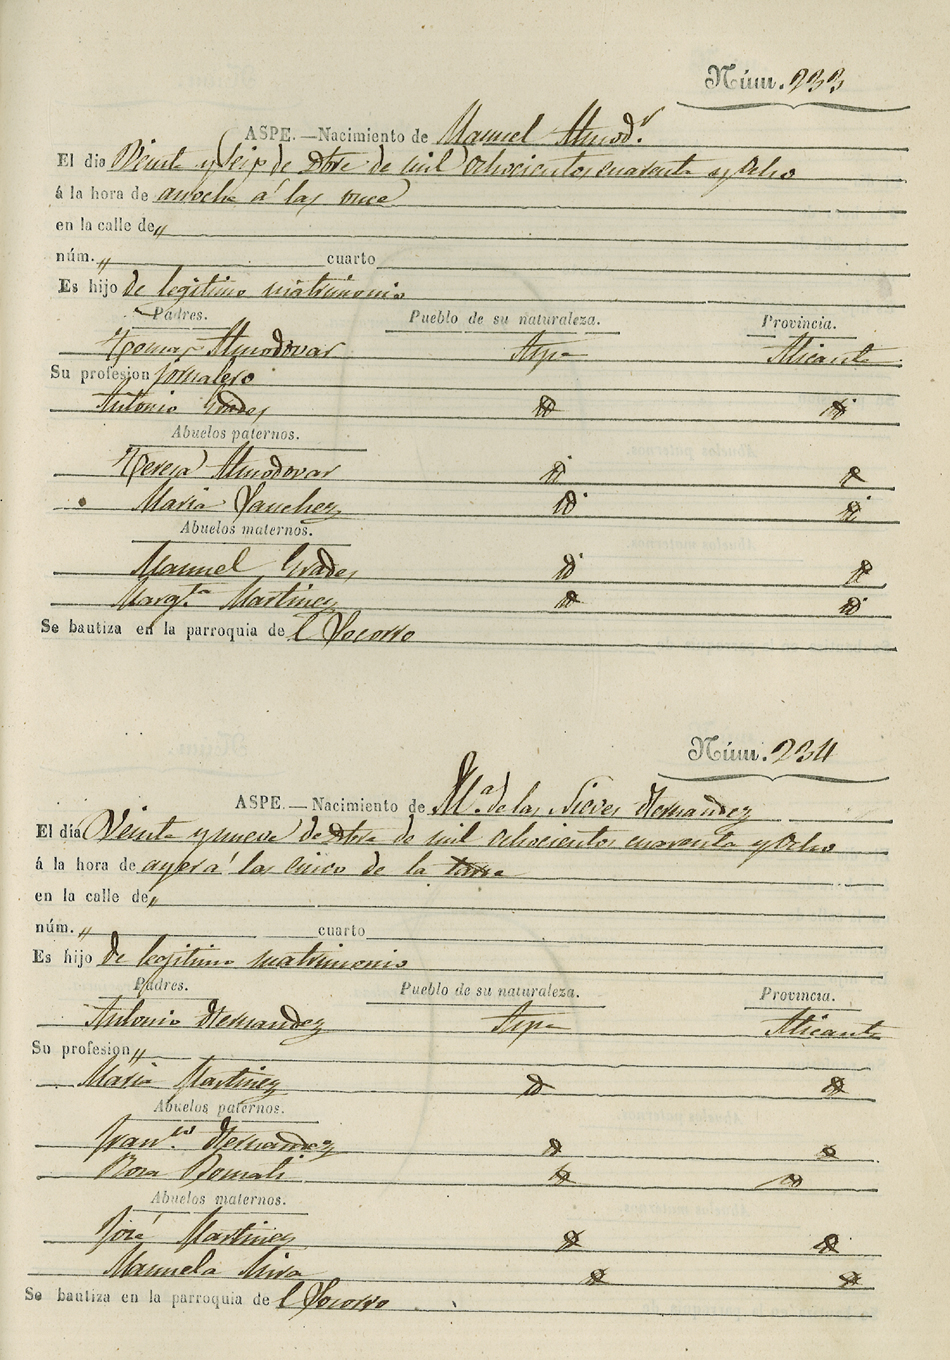 Núm. 233
ASPE.—Nacimiento de Manuel Almod.r
El dia Veinte y Seis de Dbre de mil ochocientos cuarenta y Ocho
á la hora de anoche á las once
en la calle de „
núm. „ cuarto
Es hijo de legitimo matrimonio
Padres. Pueblo de su naturaleza. Provincia.
Tomas Almodovar Aspe Alicante
Su profesion Jornalero
Antonio Grades id id
Abuelos paternos.
Almodovar id id
Maria Sanchez id id
Abuelos maternos.
Manuel Grades id id
Margta Martinez id id
Se bautiza en la parroquia de l Socorro
Núm. 234
ASPE.—Nacimiento de M.a de las Nieves Hernandez
El dia Veinte y nueve de Dbre de mil ochocientos cuarenta y Ocho
á la hora de ayer á las cinco de la tarde
en la calle de „
núm. „ cuarto
Es hijo de legitimo matrimonio
Padres. Pueblo de su naturaleza. Provincia.
Antonio Hernandez Aspe Alicante
Su profesion „
Maria Martinez id id
Abuelos paternos.
Fran.co Hernandez id id
Rosa id id
Abuelos maternos.
José Martinez id id
Manuela Mira id id
Se bautiza en la parroquia de l Socorro